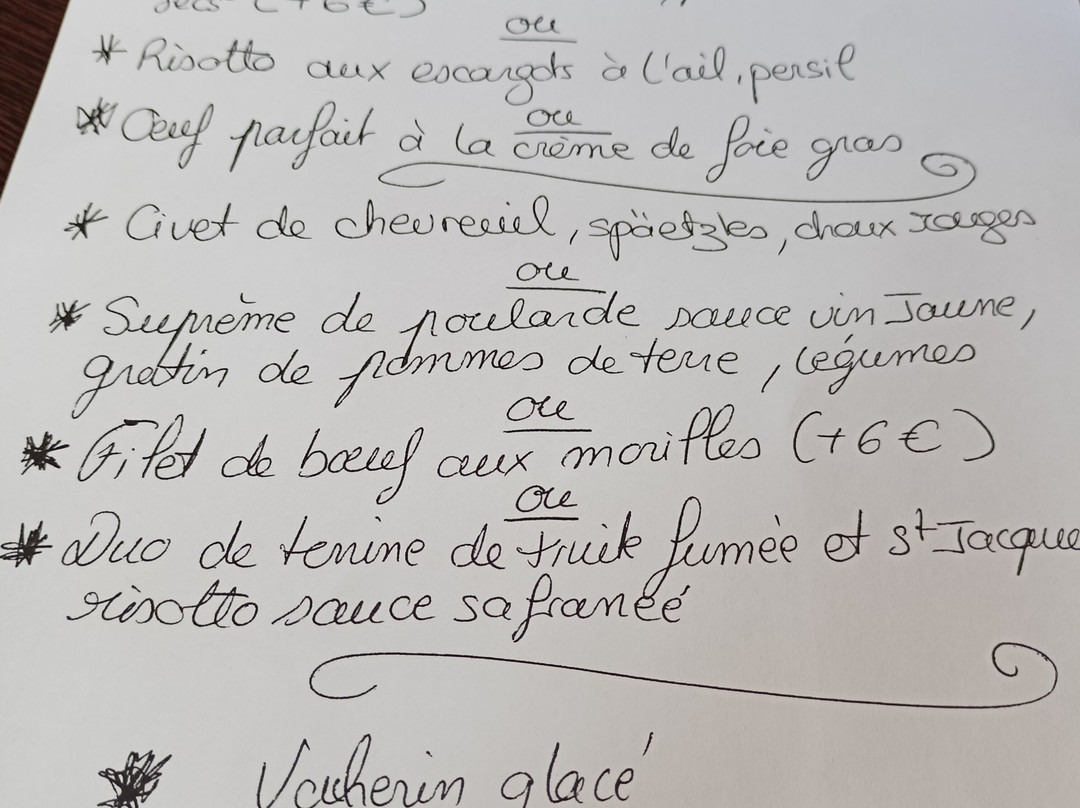 (+6€)
ou
* Risotto aux escargots à l'ail, persil
ou
* Œuf parfait à la crème de foie gras
* Civet de chevreuil, späetzles, choux rouges
ou
* Suprème de poularde sauce vin Jaune,
gratin de pommes de terre, légumes
ou
* Filet de bœuf aux morilles (+6€)
ou
* Duo de terrine de truite fumée et St Jacque
risotto sauce safranéé
* Vacherin glacé